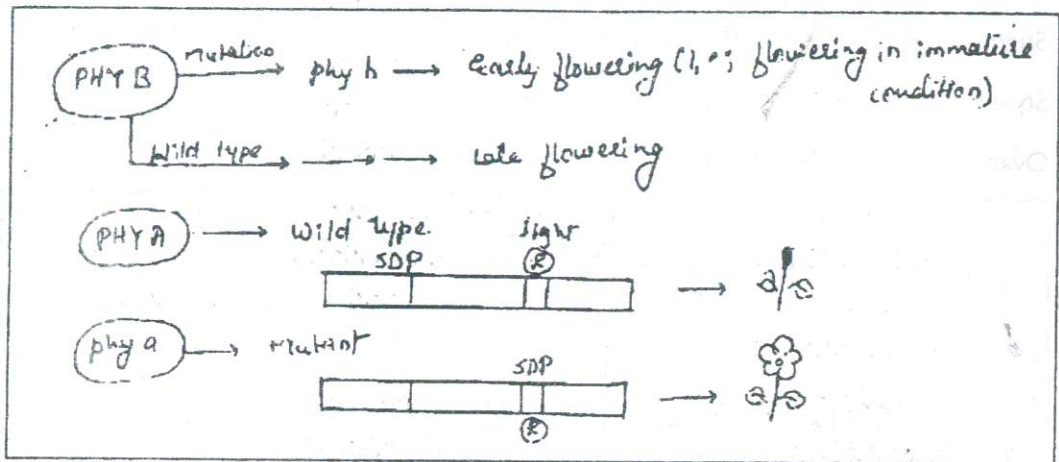 PHY B Mutation phy b Early flowering (i.e; flowering in immature
condition)
Wild type Late flowering
PHY A Wild type. light
SDP R
phy a Mutant
SDP
R